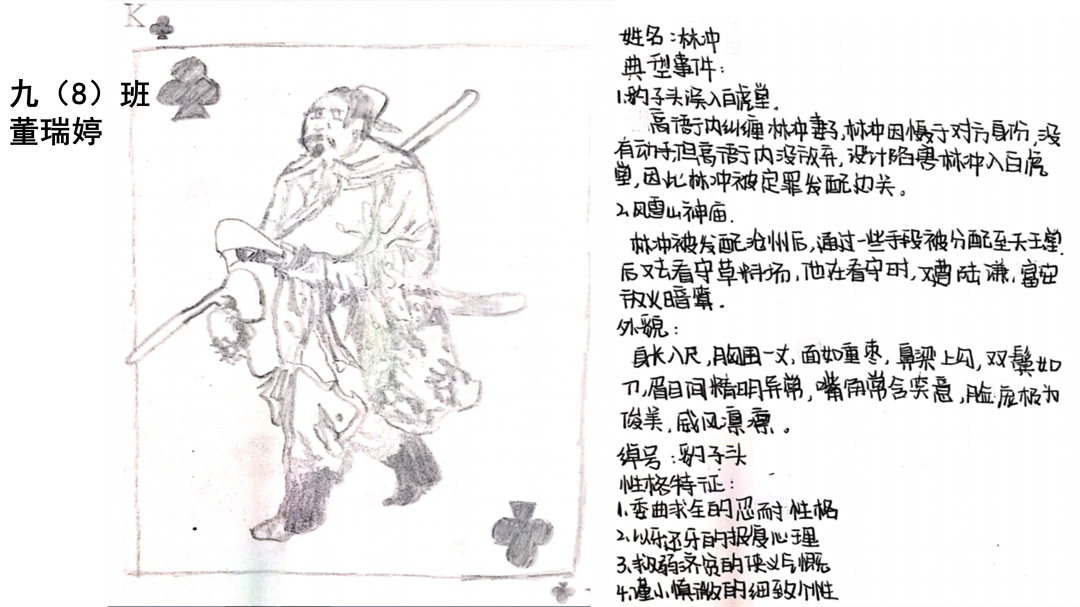 K
九（8）班
董瑞婷
姓名：林冲
典型事件：
1.豹子头误入白虎堂.
高衙内纠缠林冲妻子,林冲因慑于对方身份,没
有动手,但高衙内没放弃,设计陷害林冲入白虎
堂,因此林冲被定罪发配边关。
2.风雪山神庙.
林冲被发配沧州后,通过一些手段被分配至天王堂.
后又去看守草料场,他在看守时,又遭陆谦,富安
放火暗算.
外貌:
身长八尺,胸围一丈,面如重枣,鼻梁上勾,双鬓如
刀,眉目间精明异常,嘴角常含笑意,脸庞极为
俊美,威风凛凛。
绰号:豹子头
性格特征:
1.委曲求全的忍耐性格
2.以牙还牙的报复心理
3.救弱济贫的侠义气慨
4.谨小慎微的细致个性